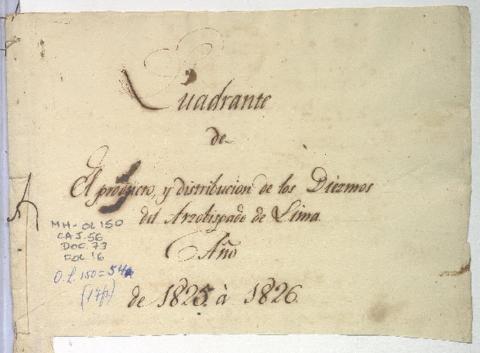 Quadrante
de
El producto, y distribucion de los Diezmos
del Arzobispado de Lima.
Año
de 1825 à 1826.
MH-OL 150
CAJ. 56
DOC. 73
FOL. 16
O.L. 150=54a
(17f)